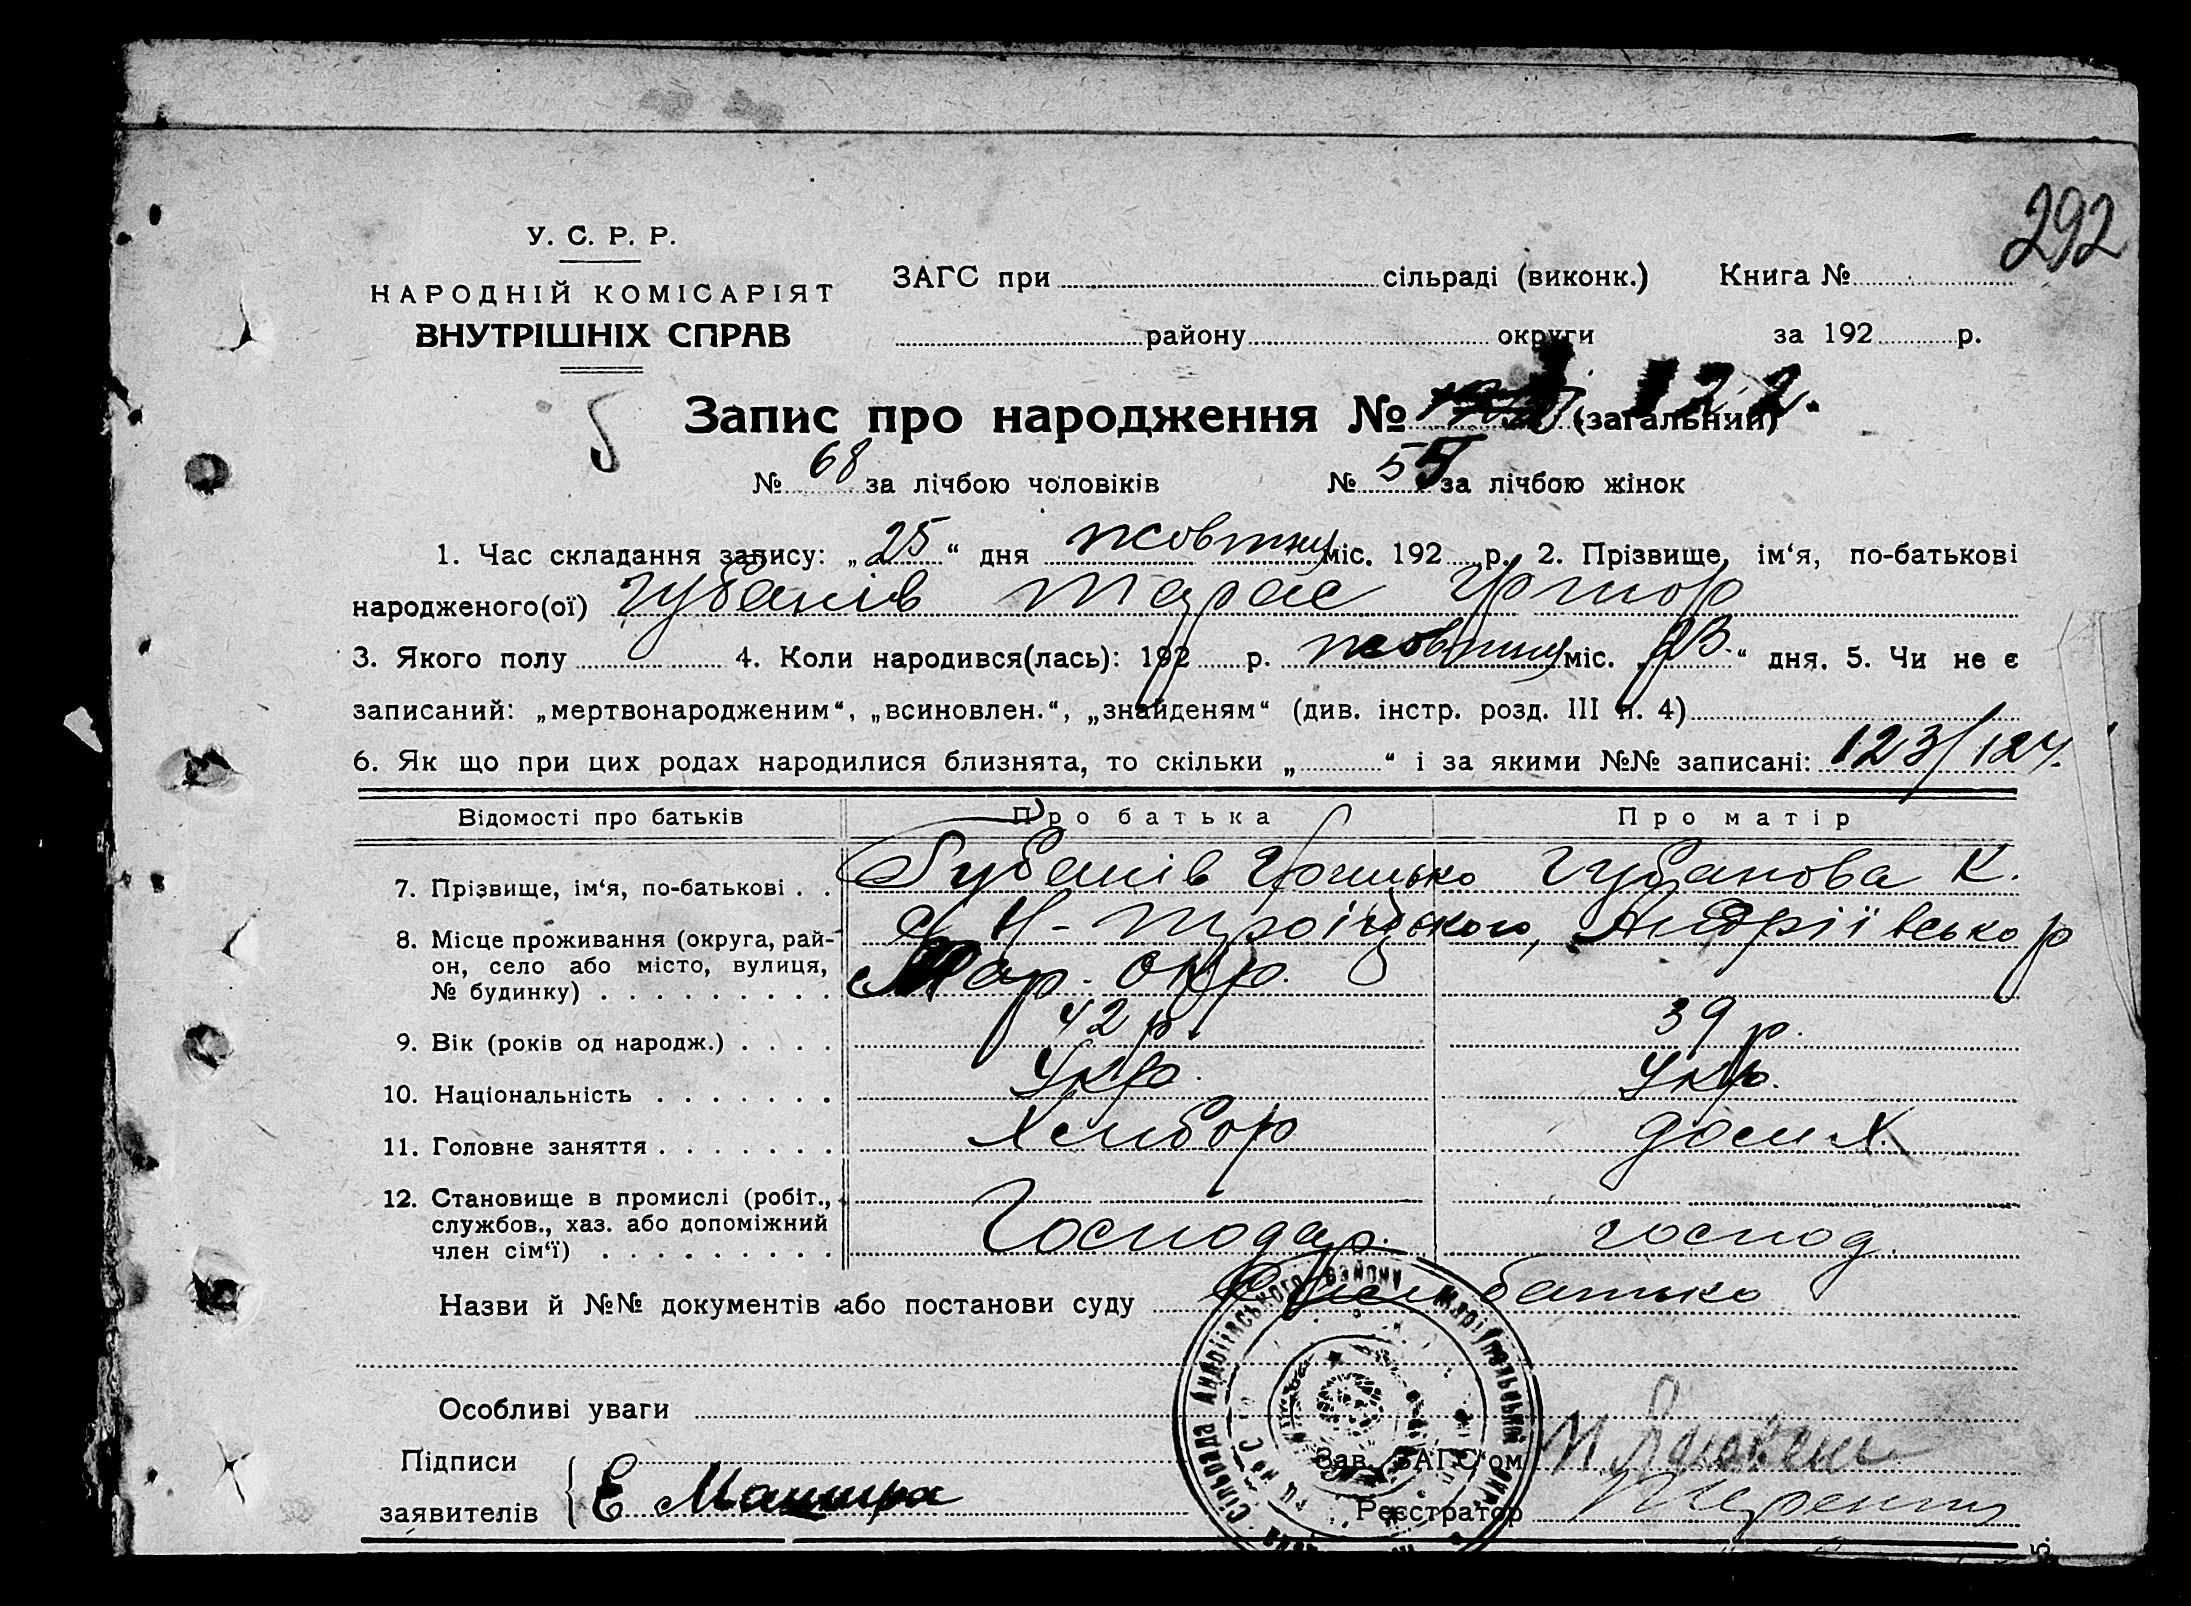 292
У. С. Р. Р.
НАРОДНІЙ КОМІСАРІЯТ
ВНУТРІШНІХ СПРАВ
ЗАГС при сільраді (виконк.) Книга №
району округи за 192 р.
Запис про народження № (загальний) 122.
№ 68 за лічбою чоловіків № 55 за лічбою жінок
1. Час складання запису: „25“ дня жовтня міс. 192 р. 2. Прізвище, ім‘я, по-батькові
народженого(ої) Губанів Тарас Григор
3. Якого полу 4. Коли народився(лась): 192 р. жовтня міс. „23.“ дня. 5. Чи не є
записаний: „мертвонародженим“, „всиновлен.“, „знайденям“ (див. інстр. розд. III п. 4)
6. Як що при цих родах народилися близнята, то скільки „ “ і за якими №№ записані: 123/124.
Відомості про батьків Про батька Про матір
7. Прізвище, ім‘я, по-батькові . . Губанів Грицько Губанова К.
8. Місце проживання (округа, рай-
он, село або місто, вулиця,
№ будинку) . . . . . . . . .
Н-Троіцького, Андріївсько р
Мар. окр.
9. Вік (років од народж.) . . . . 42 р. 39 р.
10. Національність . . . . . . . Укр. Укр.
11. Головне заняття . . . . . . . Хлибор дом х.
12. Становище в промислі (робіт.,
службов., хаз. або допоміжний
член сім‘ї) . . . . . . . . .
Господар. господ.
Назви й №№ документів або постанови суду батько
Особливі уваги
Підписи
заявителів
Е
Зав. ЗАГС‘ом
Реєстратор
Сільрада Андріївського району Маріупольської окр.